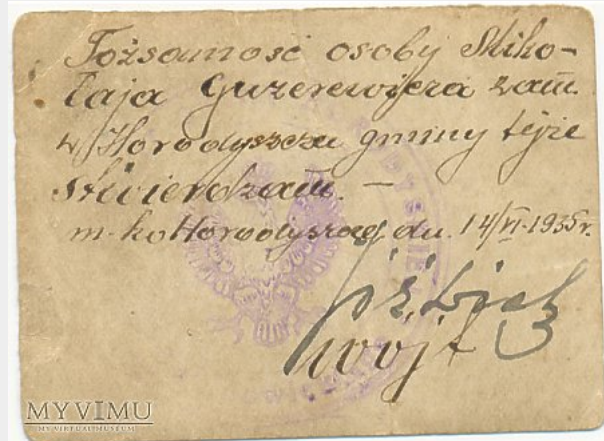 Tożsamość osoby Miko-
łaja Guzerewicza zam.
w Horodyszczu gminy tejże
stwierdzam. —
m-ko Horodyszcze, dn. 14/VI-1935 r.
wójt
MYVIMU
MY VIRTUAL MUSEUM